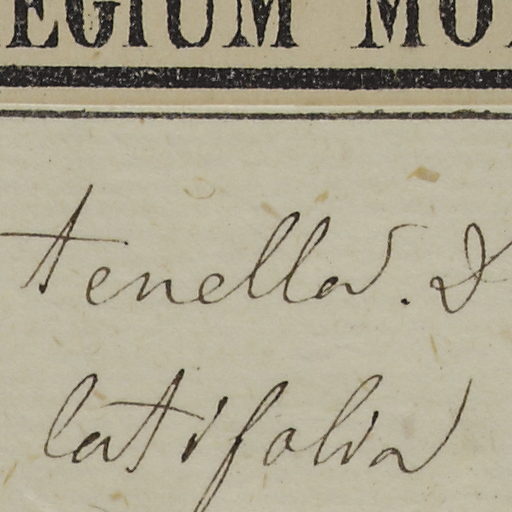 EGIUM MO
tenella. D
latifolia